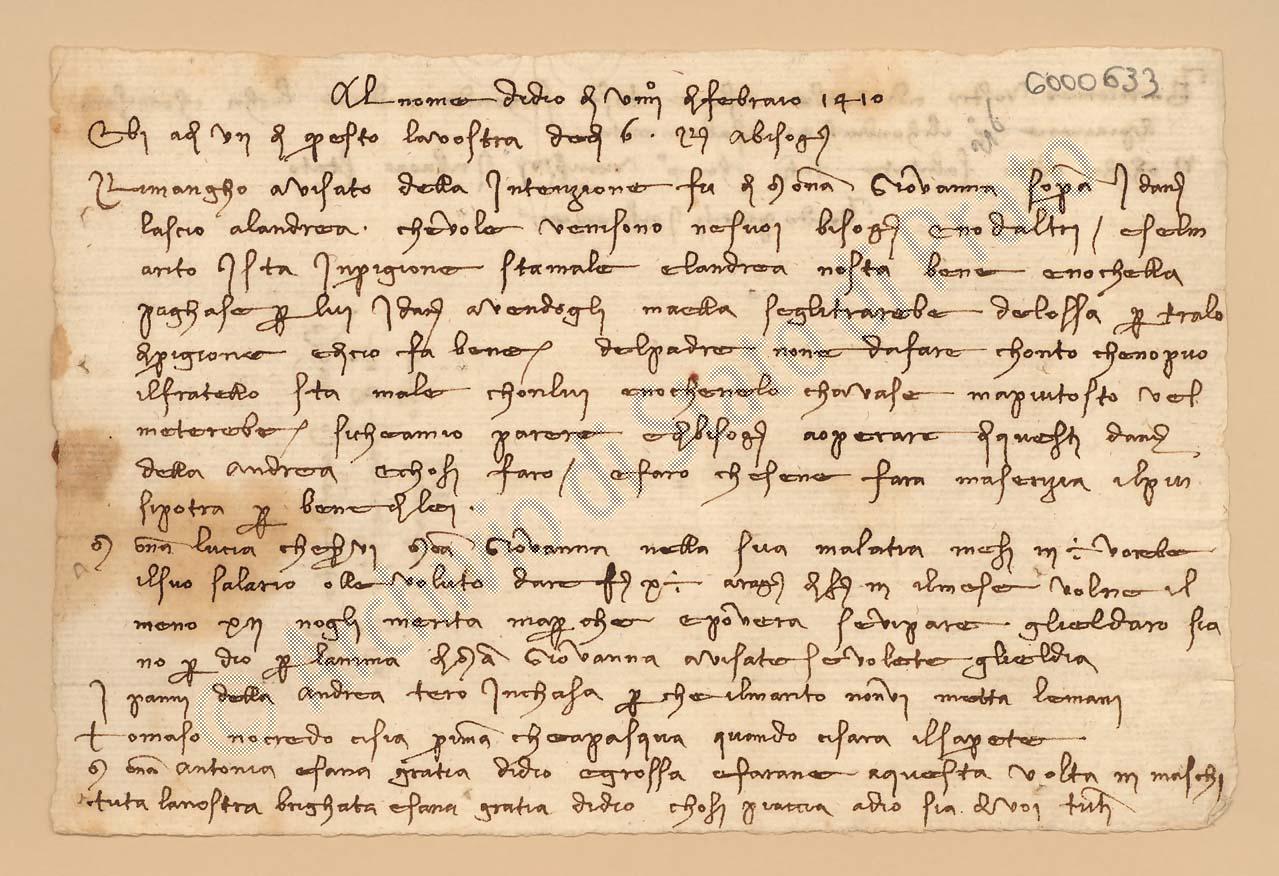 6000633
Al nome didio di viiiº di febraio 1410
Ebi adi vii di questo lavostra dedi 6. rispo abisogni
Rimangho avisato della Intenzione fu di mona Giovanna sopra I danari
lascio alandrea. chevole venisono nesuoi bisogni enodaltri / eselm
arito Ista Inprigione stamale elandrea nosta bene enochella
paghase per lui I danari avendogli maella seglitrarebe delossa per tralo
di prigione edicio fa bene / delpadre none dafare chonto chenopuo
ilfratello sta male chonlui enochenelo chavase mapiutosto vel
meterebe / sicheamio parere edi bisogni aoperare di questi danari
della andrea echosi faro / efaro chesene fara maserizia ilpiu
sipotra per bene di lei.
mona lucia cheservi mona Giovanna nella sua malatia mesi iii ÷ vorebe
ilsuo salario olle voluto dare x ÷ di iii ilmese volne il
meno xii nogli merita maperche epovera sevipare glieldaro sia
no per dio per lanima di mona Giovanna avisate sevolete glieldia
I panni della andrea tero Inchasa perche ilmarito nonvi metta lemani
tomaso nocredo cisia prima cheapasqua quando cisara ilsaperete
mona antonia esana gratia didio egrossa efarane aquesta volta iii maschi
tuta lanostra brighata esana gratia didio chosi piaccia adio sia di voi tuti
© Archivio di Stato di Prato